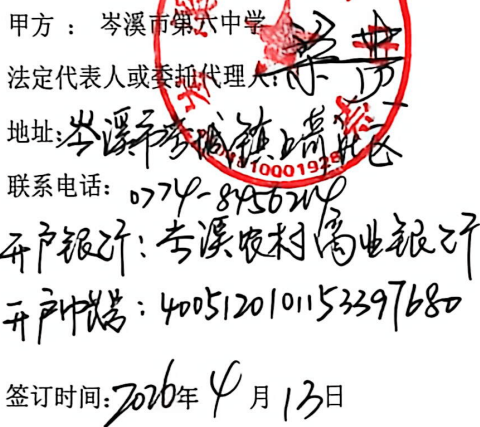 甲方 ： 岑溪市第六中学
法定代表人或委托代理人：
地址：岑溪市岑城镇上奇社区
联系电话：0774-8456214
开户银行：岑溪农村商业银行
开户帐号：4005120101153397680
签订时间：2026年 4 月 13 日
10001928